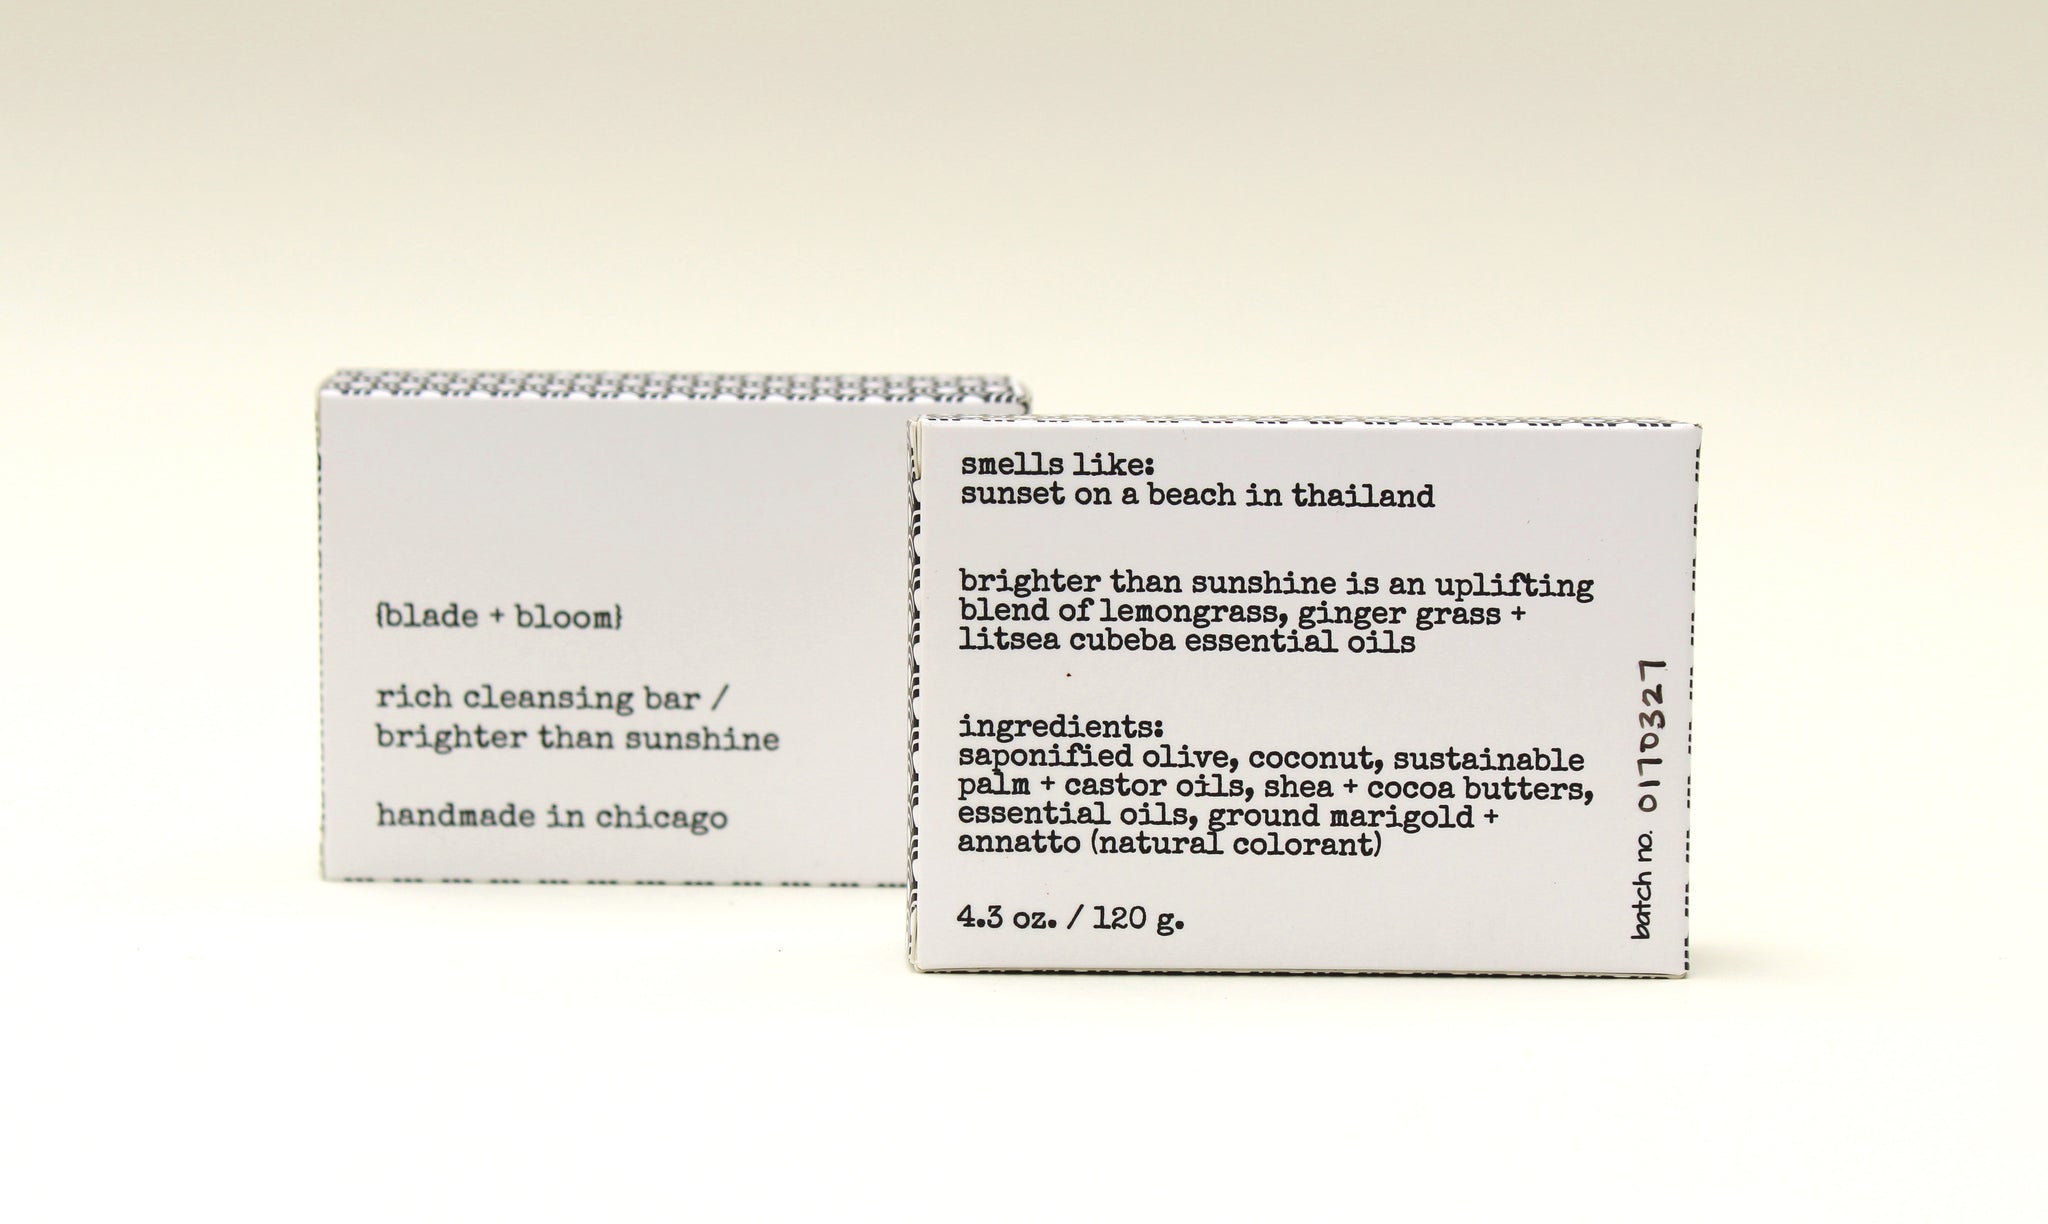 {blade + bloom}
rich cleansing bar /
brighter than sunshine
handmade in chicago
smells like:
sunset on a beach in thailand
brighter than sunshine is an uplifting
blend of lemongrass, ginger grass +
litsea cubeba essential oils
ingredients:
saponified olive, coconut, sustainable
palm + castor oils, shea + cocoa butters,
essential oils, ground marigold +
annatto (natural colorant)
4.3 oz. / 120 g.
batch no. 0170327